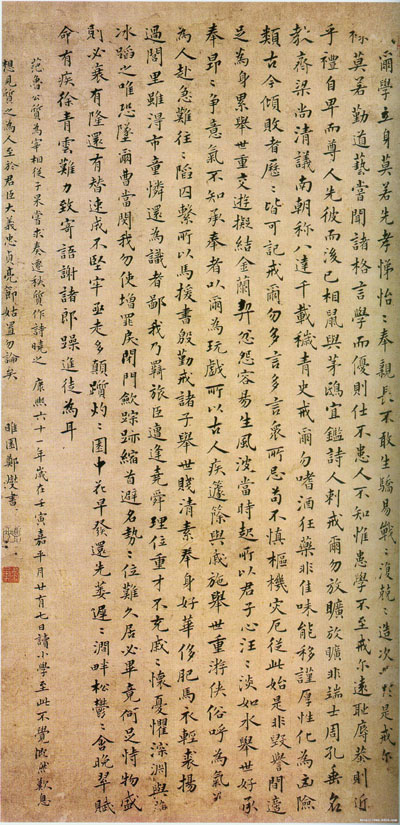 爾學立身莫若先孝悌怡〻奉親長不敢生驕易戰〻復兢〻造次必於是戒爾
祿莫若勤道藝嘗聞諸格言學而優則仕不患人不知惟患學不至戒爾遠恥辱恭則近
乎禮自卑而尊人先彼而後己相鼠與茅鴟宜鑑詩人刺戒爾勿放曠放曠非端士周孔垂名
教齊梁尚清議南朝稱八達千載穢青史戒爾勿嗜酒狂藥非佳味能移謹厚性化為凶險
類古今傾敗者歷〻皆可記戒爾勿多言多言眾所忌苟不慎樞機災厄從此始是非毀譽間適
足為身累舉世重交遊擬結金蘭契忿怨容易生風波當時起所以君子心汪〻淡如水舉世好承
奉昂〻爭意氣不知承奉者以爾為玩戲所以古人疾籧篨與戚施舉世重游俠俗呼為氣義
為人赴急難往〻陷囚繫所以馬援書殷勤戒諸子舉世賤清素奉身好華侈肥馬衣輕裘揚〻
過閭里雖得市童憐還為識者鄙我乃羈旅臣遭逢堯舜理位重才不充戚〻懷憂懼深淵與薄
冰蹈之唯恐墜爾曹當閔我勿使增罪戾閉門斂蹤跡縮首避名勢〻位難久居必畢竟何足恃物盛
則必衰有隆還有替速成不堅牢亟走多顛躓灼〻園中花早發還先萎遲〻澗畔松鬱〻含晚翠賦
命有疾徐青雲難力致寄語謝諸郎躁進徒為耳
范魯公質為宰相從子杲嘗求奏遷秩質作詩曉之 康熙六十一年歲在壬寅嘉平月廿有七日讀小學至此不覺慨然歎息
想見質之為人至於君臣大義忠貞亮節姑置勿論矣 雎園鄭燮書